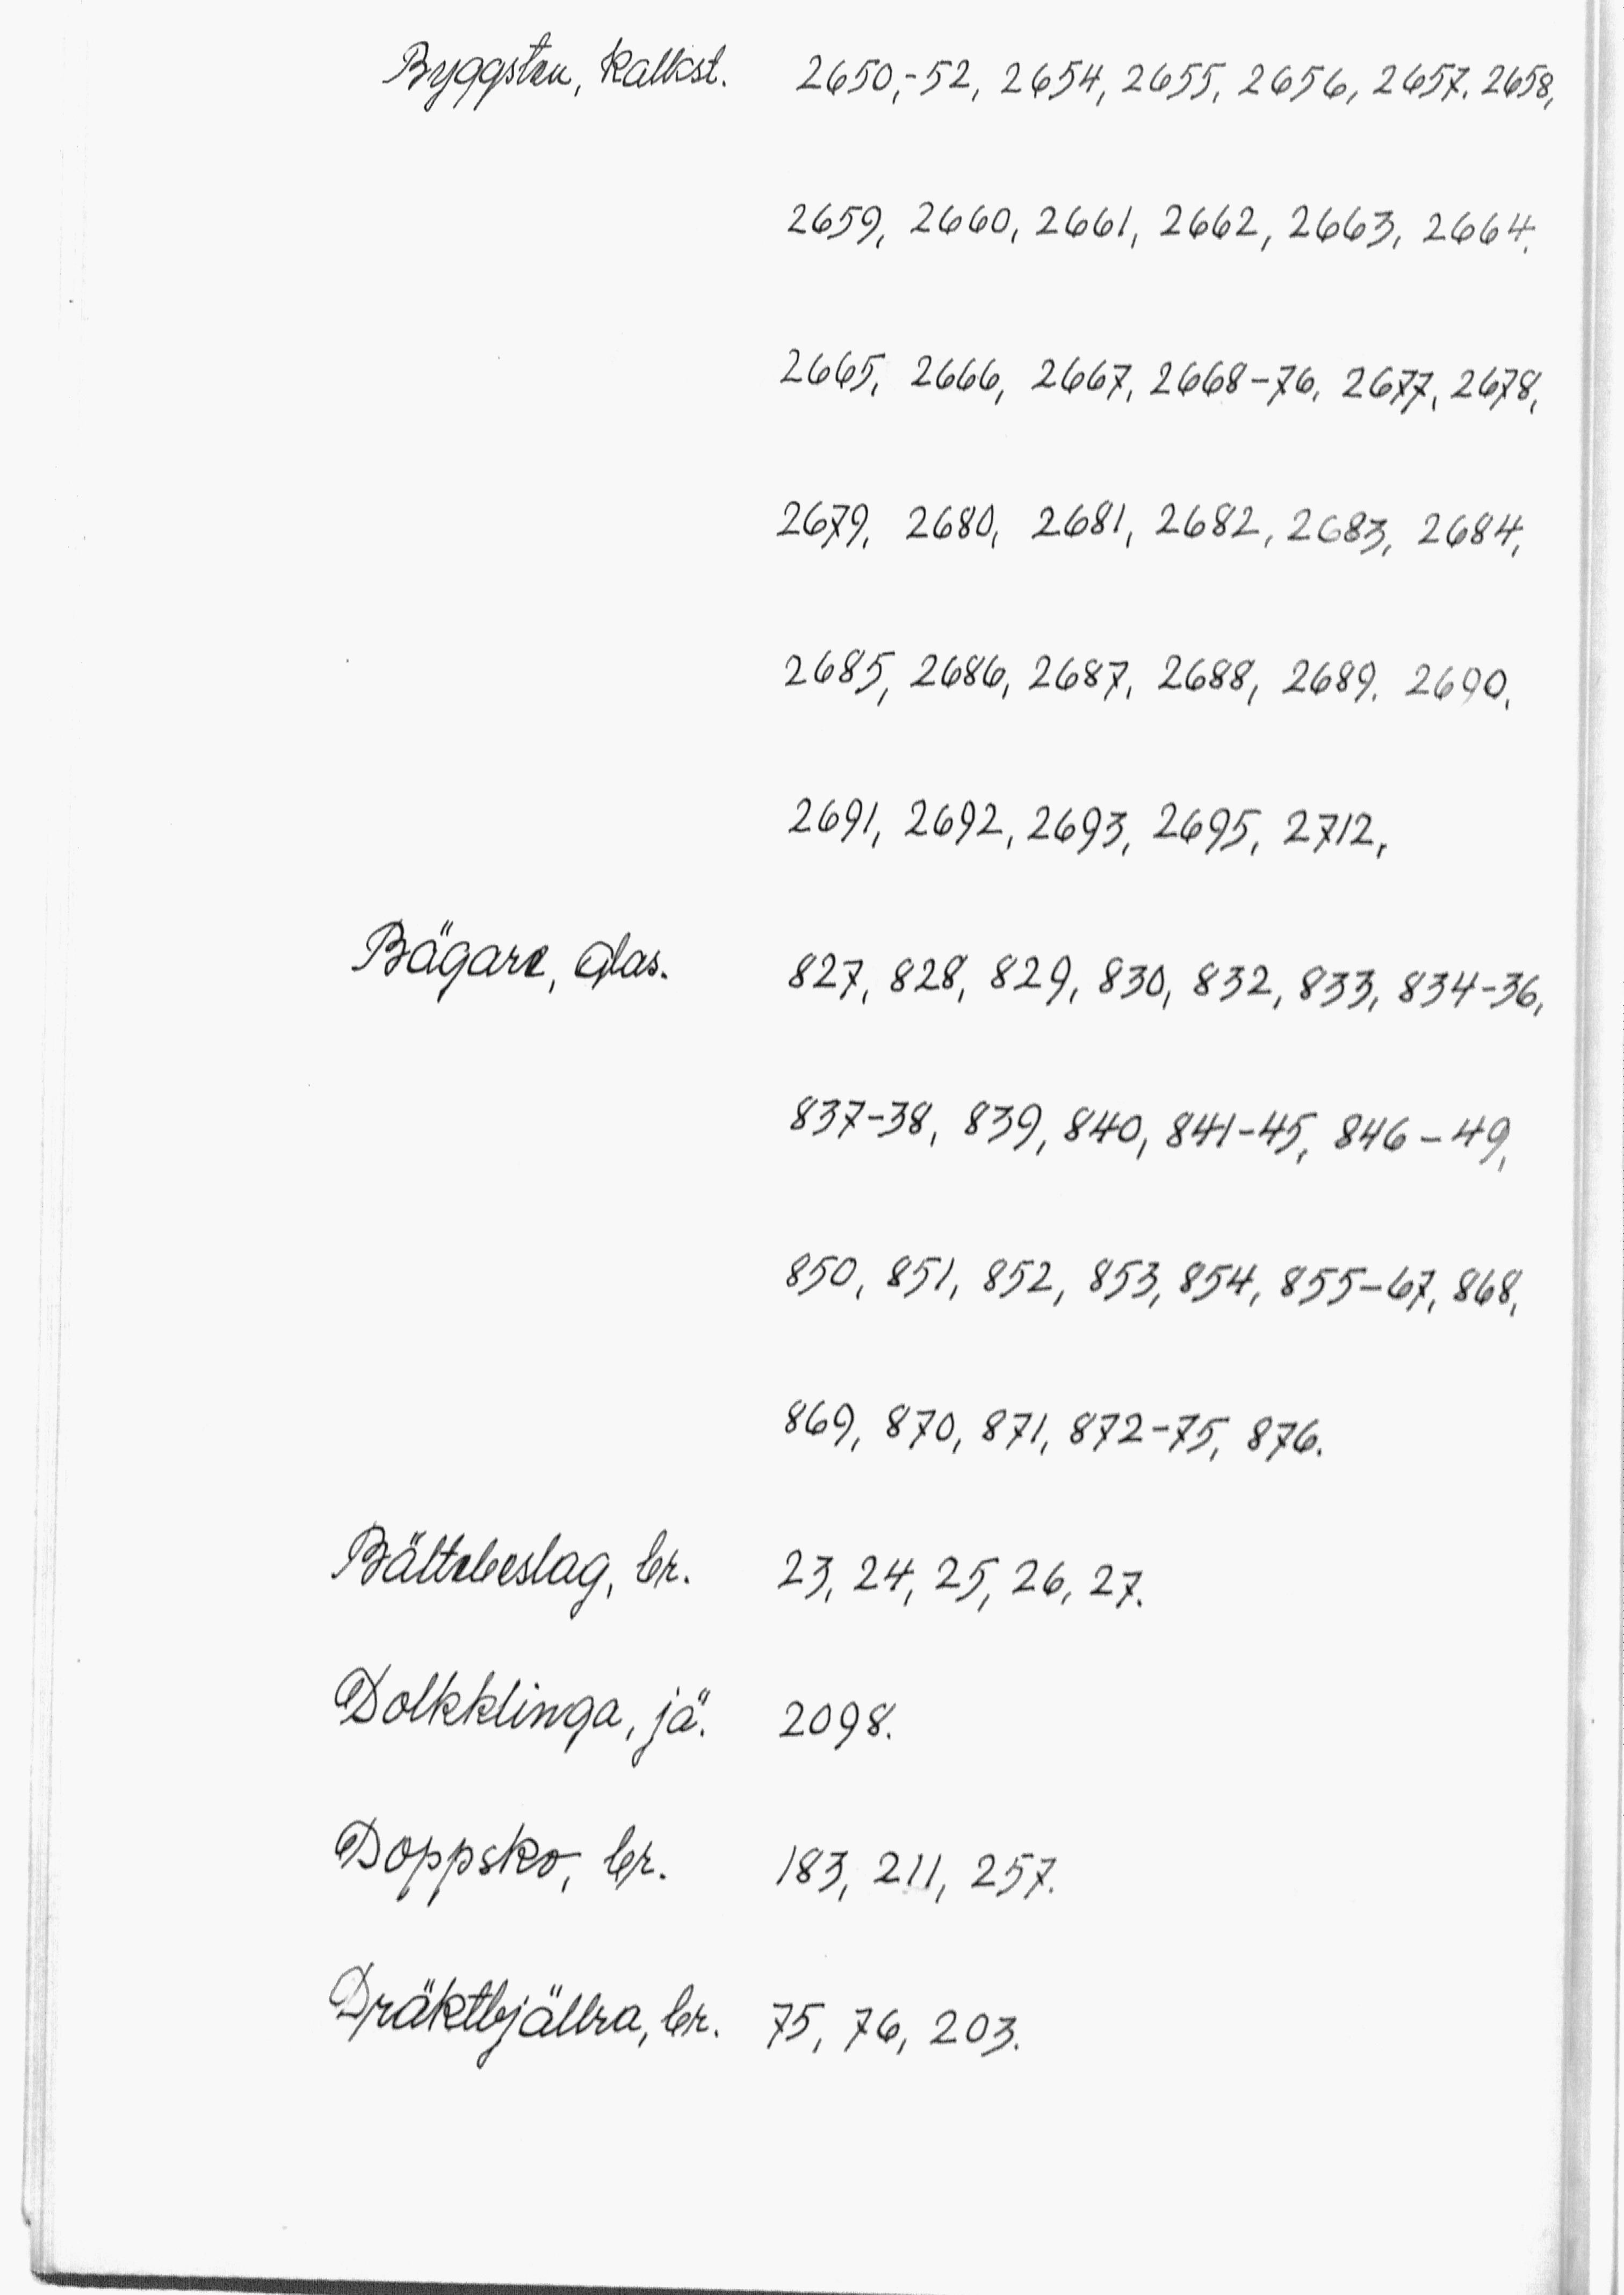 Byggsten, Kalkst. 2650,-52, 2654, 2655, 2656, 2657. 2658,
2659, 2660, 2661, 2662, 2663, 2664.
2665, 2666, 2667, 2668-76, 2677, 2678,
2679, 2680, 2681, 2682, 2683, 2684,
2685, 2686, 2687, 2688, 2689. 2690,
2691, 2692, 2693, 2695, 2712,
Bägare, Glas. 827, 828, 829, 830, 832, 833, 834-36,
837-38, 839, 840, 841-45, 846-49,
850, 851, 852, 853, 854, 855-67, 868,
869, 870, 871, 872-75, 876.
Bältebeslag, br. 23, 24, 25, 26, 27.
Dolkklinga, jä. 2098.
Doppsko, br. 183, 211, 257.
Dräktbjällra, br. 75, 76, 203.